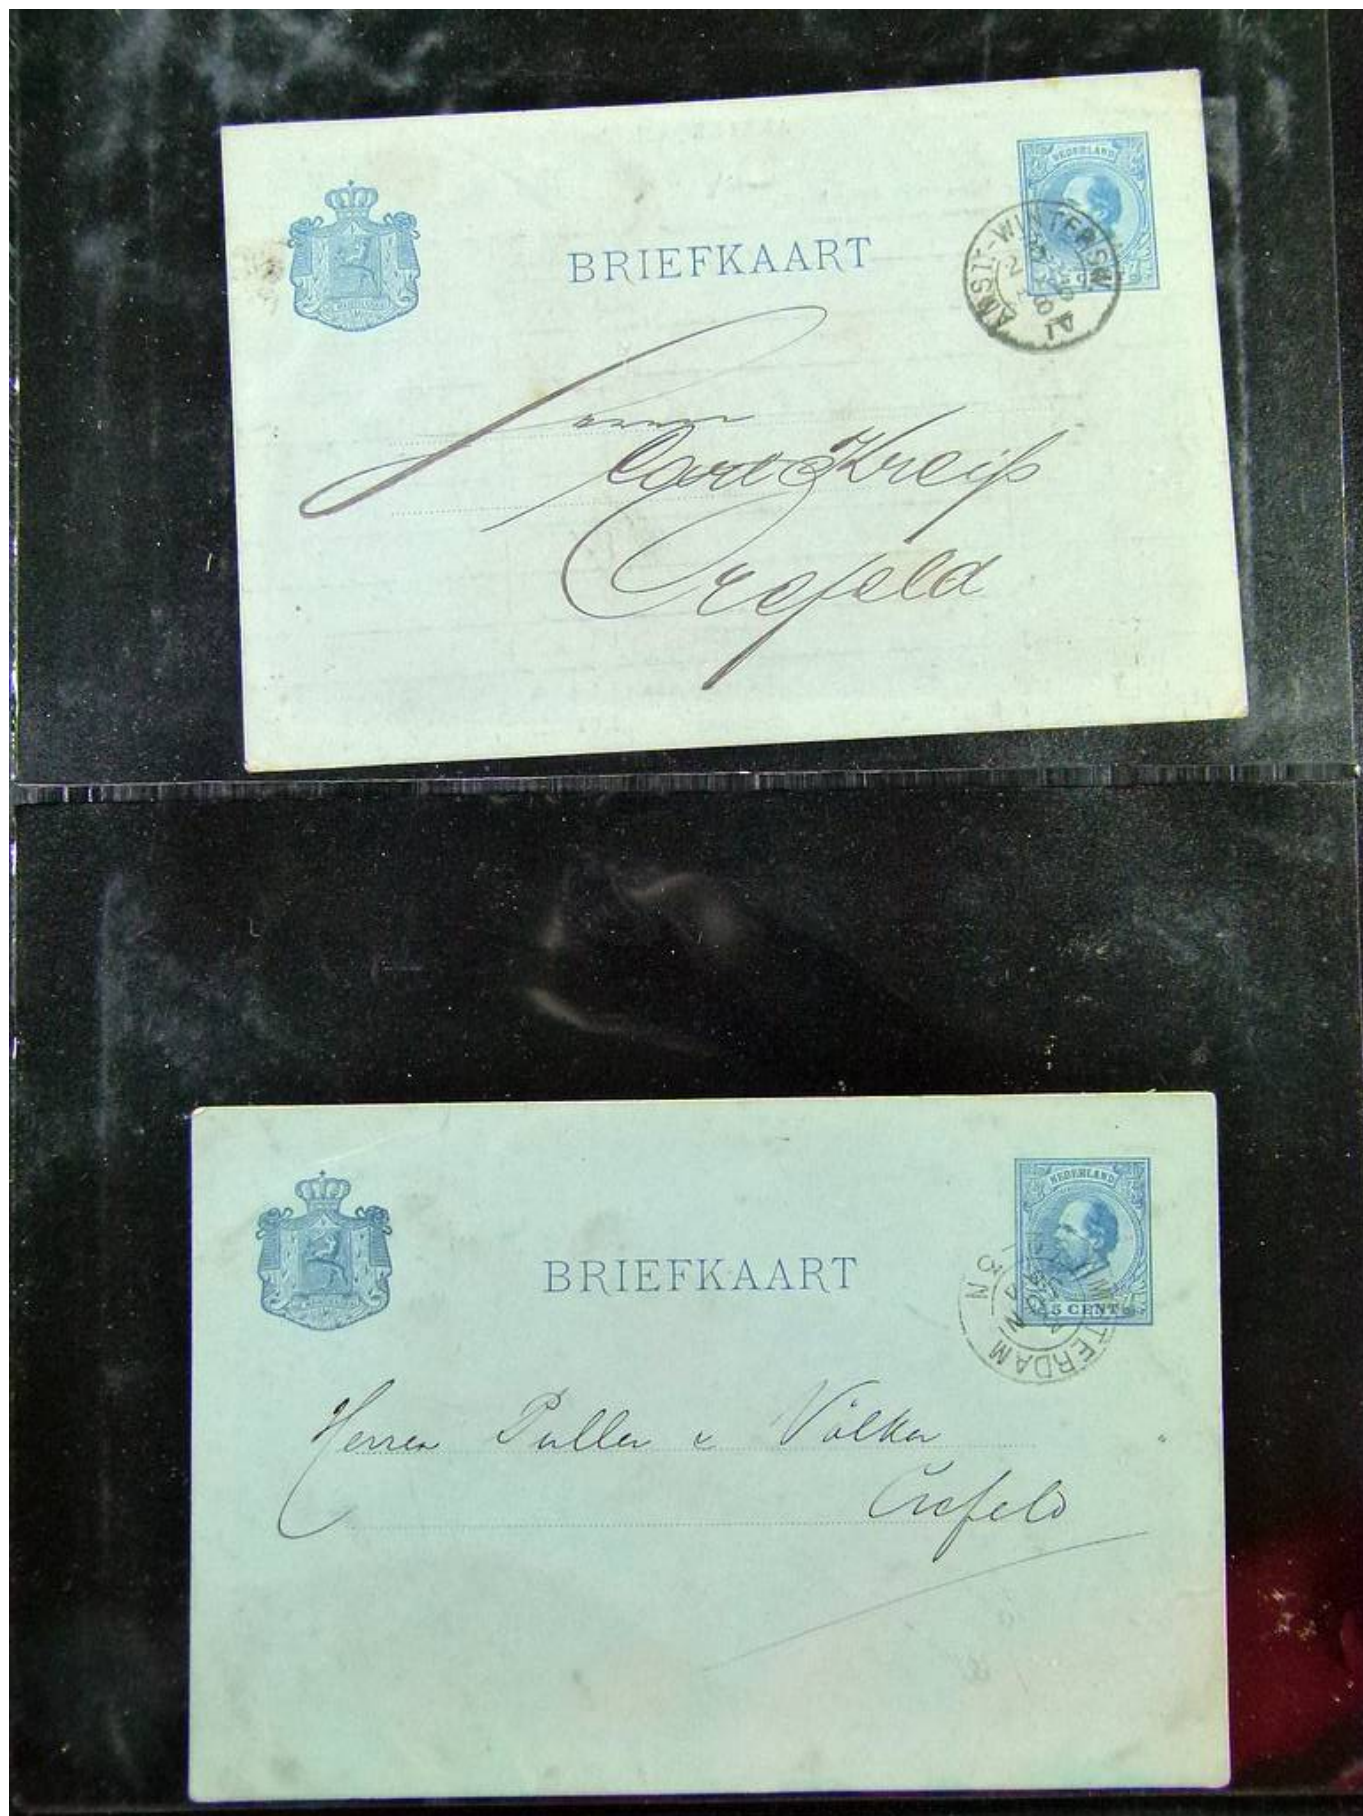 NEDERLAND
BRIEFKAART
AMST-WINTERSW
Herrn
Carl Kreiß
Crefeld
NEDERLAND
BRIEFKAART
5 CENT
Herren Puller & Völker
Crefeld